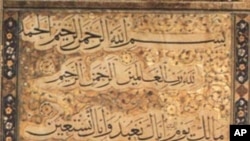 بسم الله الرحمن الرحيم
لله رب العالمين الرحمن الرحيم
مالك يوم اياك نعبد واياك نستعين
AP